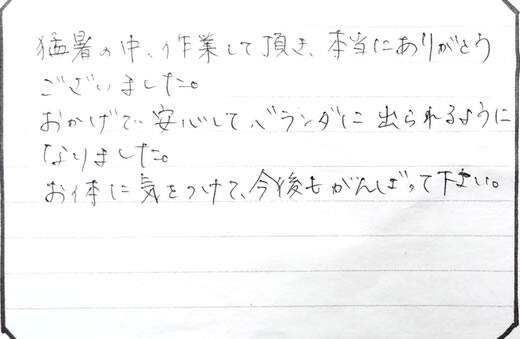 猛暑の中、作業して頂き、本当にありがとう
ございました。
おかげで、安心して、ベランダに出られるように
なりました。
お体に気をつけて、今後もがんばって下さい。